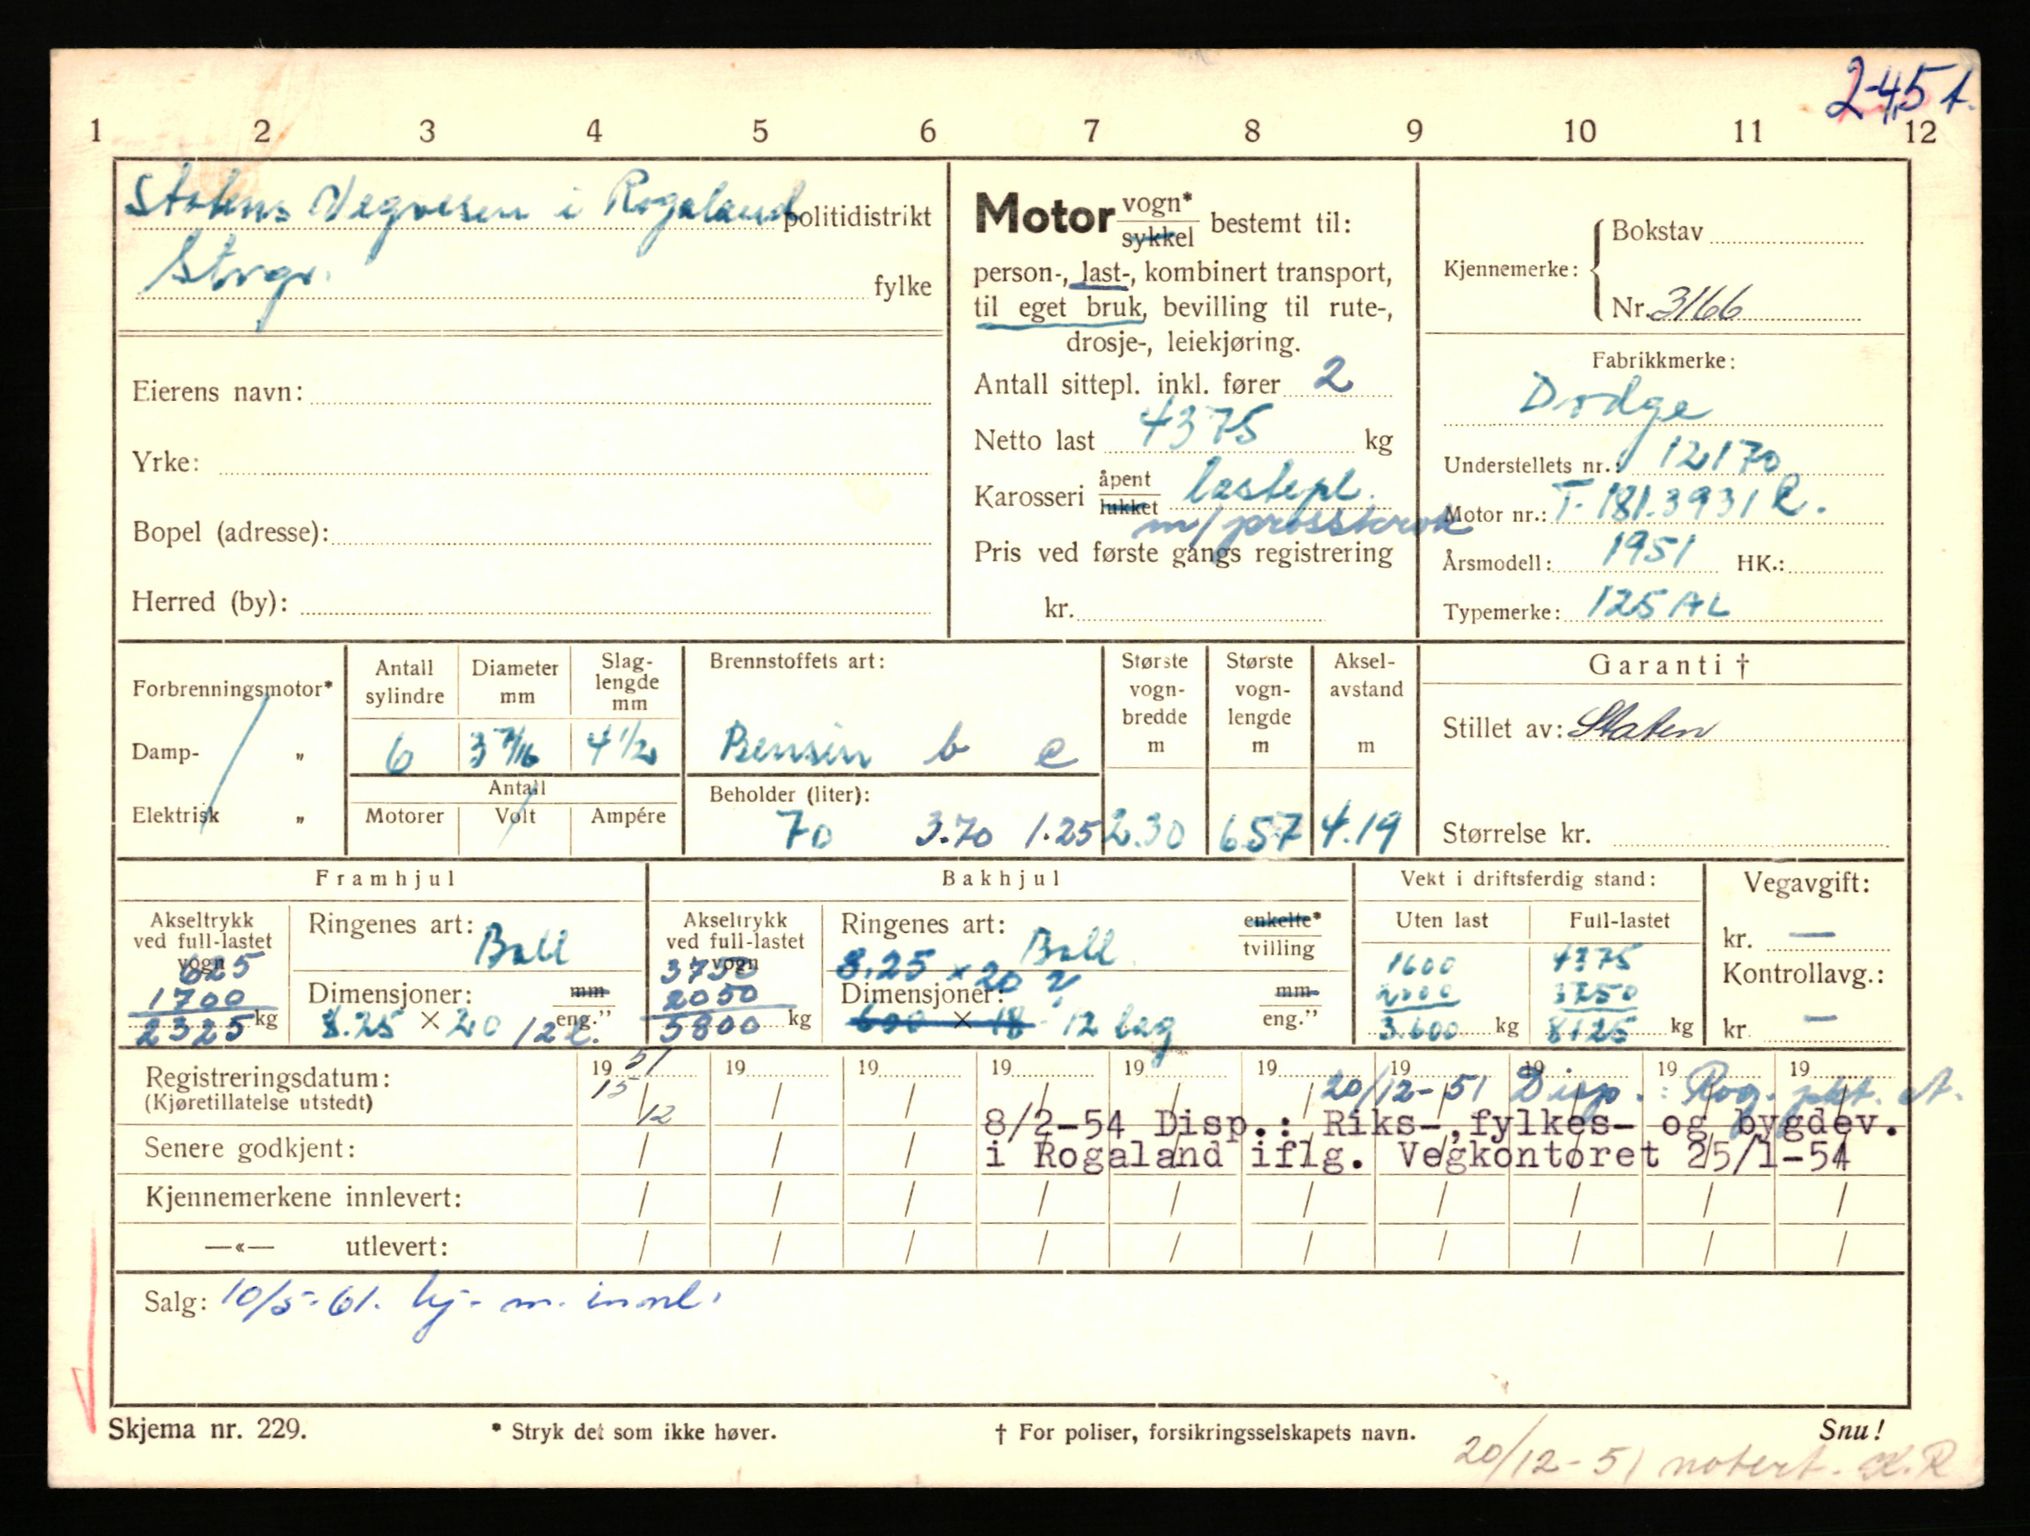 2-4,5 t.
1 2 3 4 5 6 7 8 9 10 11 12
Statens Vegvesen i Rogaland politidistrikt
Stvgr. fylke
Eierens navn:
Yrke:
Bopel (adresse):
Herred (by):
Motor vogn* sykkel bestemt til:
person-, last-, kombinert transport,
til eget bruk, bevilling til rute-,
drosje-, leiekjøring.
Antall sittepl. inkl. fører 2
Netto last 4375 kg
Karosseri åpent lukket lastepl.
m/
Pris ved første gangs registrering
kr.
Kjennemerke: Bokstav
Nr. 3166
Fabrikkmerke:
Dodge
Understellets nr.: 12170
Motor nr.: T. 181.3931 R.
Årsmodell: 1951 HK.:
Typemerke: 125 AL
Forbrenningsmotor*
Damp- „
Elektrisk „
Antall sylindre
Diameter mm
Slag-lengde mm
6 3 7/16 4 1/2
Antall
Motorer Volt Ampére
Brennstoffets art:
Bensin b e
Beholder (liter):
70 3.70 1.25
Største vogn-bredde m
2.30
Største vogn-lengde m
6.57
Aksel-avstand m
4.19
Garanti †
Stillet av: Staten
Størrelse kr.
Framhjul
Akseltrykk
ved full-lastet
vogn
625
1700
2325 kg
Ringenes art: Ball
Dimensjoner: mm
8.25 × 20 12 l. eng.”
Bakhjul
Akseltrykk
ved full-lastet
vogn
3750
2050
5800 kg
Ringenes art: Ball enkelte*
tvilling
8.25 × 20
Dimensjoner: mm
600 × 18 12 lag eng.”
Vekt i driftsferdig stand:
Uten last Full-lastet
1600 4375
2000 3750
3.600 kg 8125 kg
Vegavgift:
kr. —
Kontrollavg.:
kr. —
Registreringsdatum: 19 51 19 19 19 19 19 19 19 19 19
(Kjøretillatelse utstedt) 15/12 20/12-51 Disp.: Rog.
8/2-54 Disp.: Riks-,fylkes- og bygdev.
Senere godkjent: i Rogaland iflg. Vegkontoret 25/1-54
Kjennemerkene innlevert:
—«— utlevert:
Salg: 10/5-61. kj-m. innl.
Skjema nr. 229. * Stryk det som ikke høver. † For poliser, forsikringsselskapets navn. Snu!
20/12-51 notert. K.R